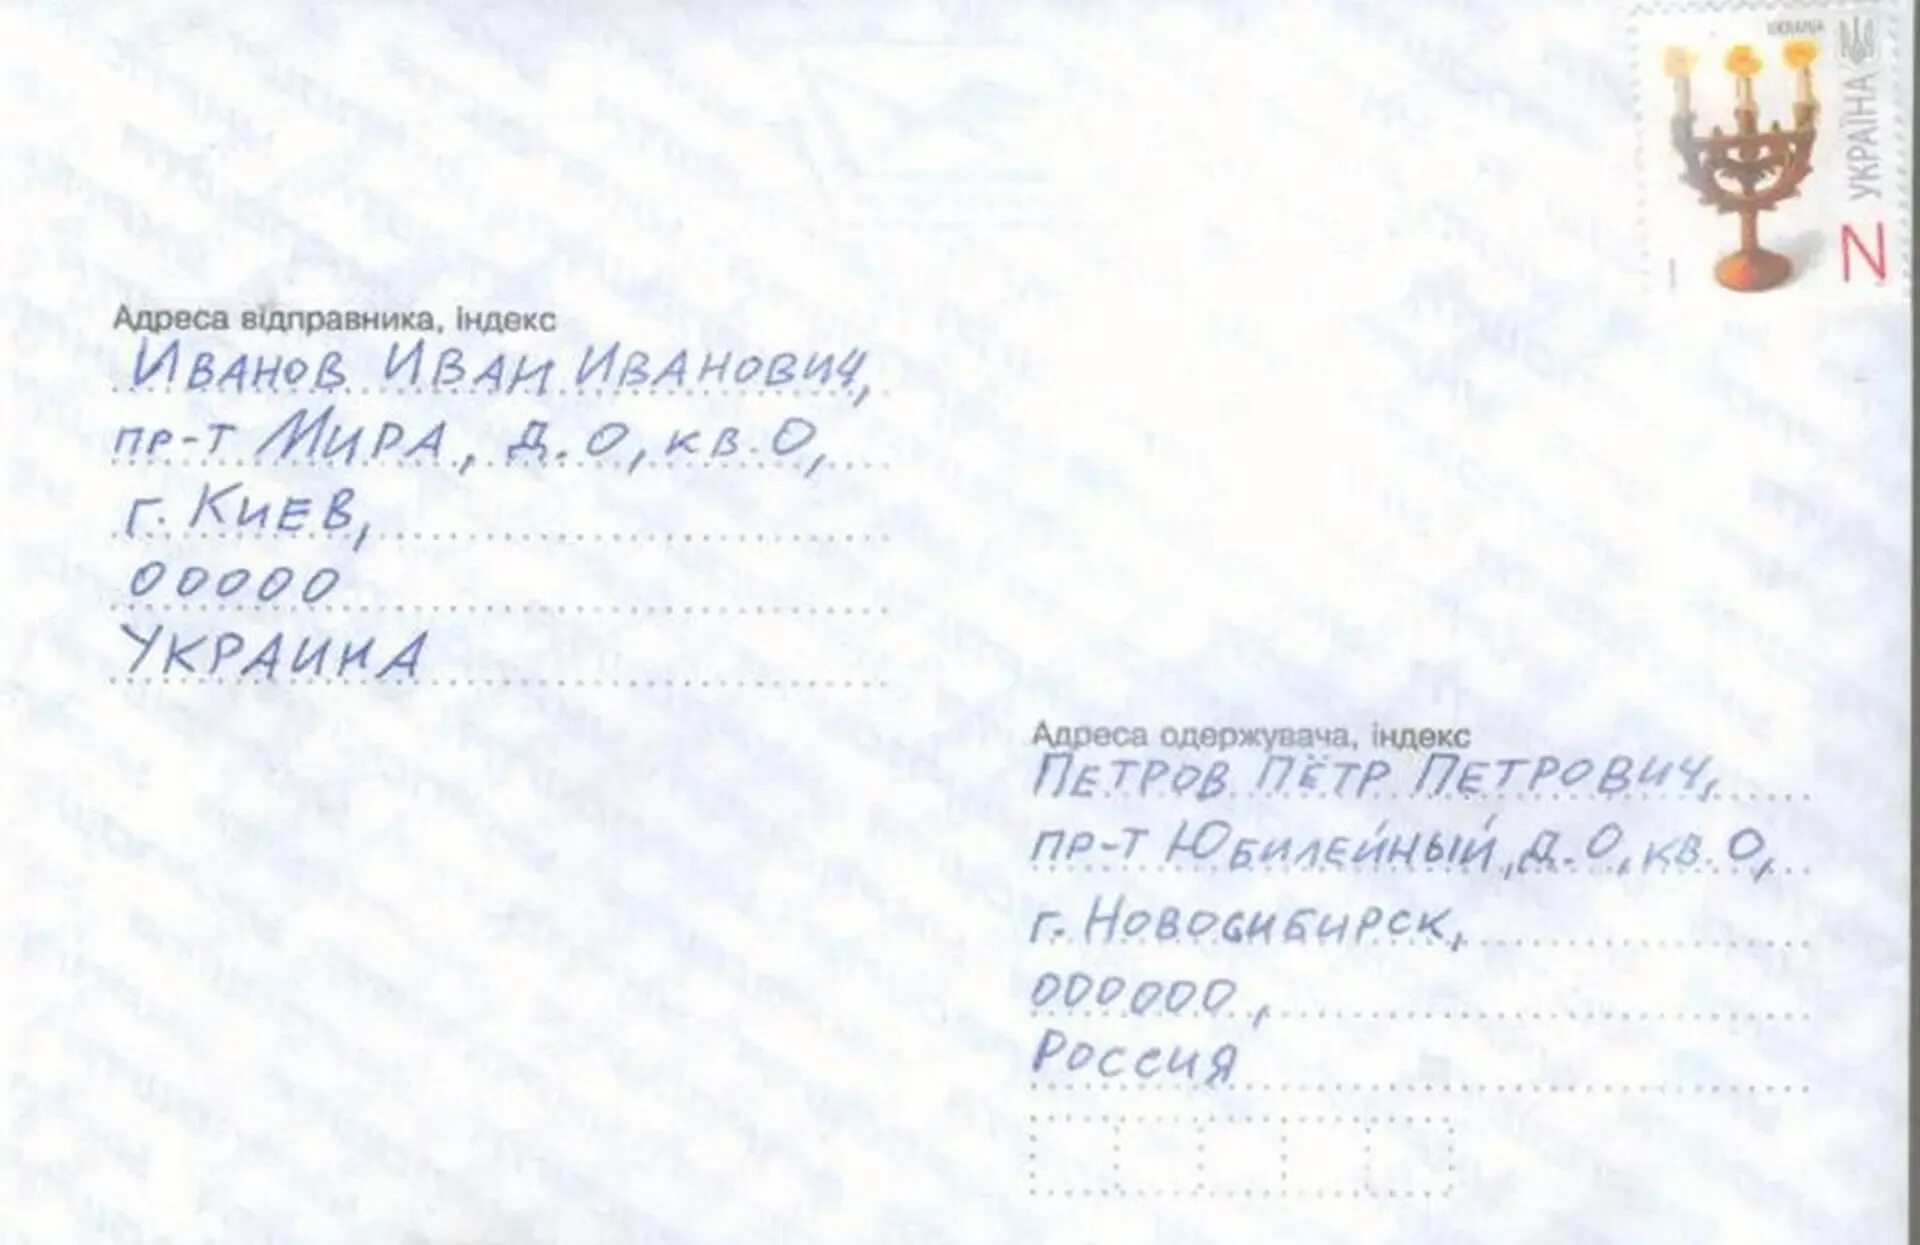 UKRAINA
УКРАЇНА
N
Адреса відправника, індекс
Иванов Иван Иванович,
пр-т Мира, д. 0, кв. 0,
г. Киев,
00000
Украина
Адреса одержувача, індекс
Петров Пётр Петрович,
пр-т Юбилейный, д. 0, кв. 0,
г. Новосибирск,
000000,
Россия